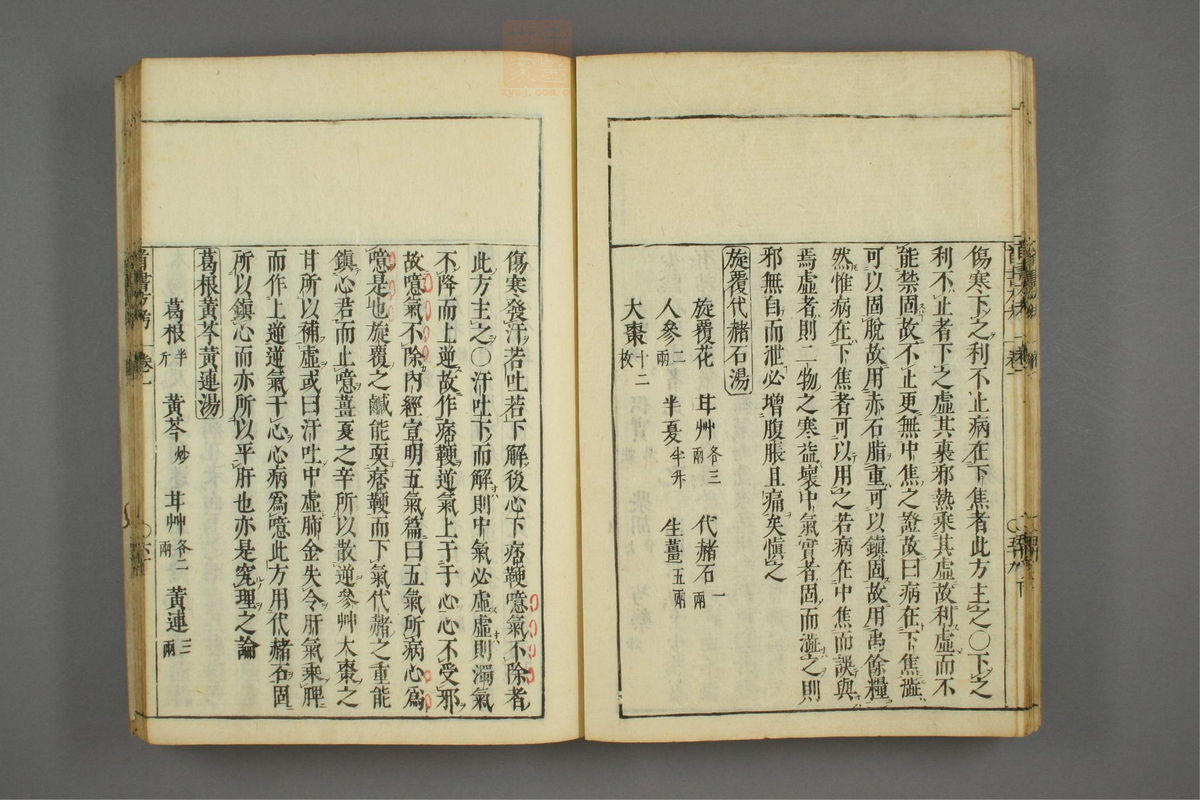 傷寒下之利不止病在下焦者此方主之〇下之
利不止者下之虛其裏邪熱乘其虛故利虛而不
能禁固故不止更無中焦之證故曰病在下焦澁
可以固脫故用赤石脂重可以鎮固故用禹餘糧
然惟病在下焦者可以用之若病在中焦而誤與
焉虛者則二物之寒益壞中氣實者固而澁之則
邪無自而泄必增腹脹且痛矣慎之
旋覆代赭石湯
旋覆花 甘艸各三兩 代赭石一兩
人參二兩 半夏半升 生薑五兩
大棗十二枚
傷寒發汗若吐若下解後心下痞鞕噫氣不除者
此方主之〇汗吐下而解則中氣必虛虛則濁氣
不降而上逆故作痞鞕逆氣上干于心心不受邪
故噫氣不除內經宣明五氣篇曰五氣所病心爲
噫是也旋覆之鹹能耎痞鞕而下氣代赭之重能
鎮心君而止噫薑夏之辛所以散逆參艸大棗之
甘所以補虛或曰汗吐中虛肺金失令肝氣乘脾
而作上逆逆氣干心心病爲噫此方用代赭石固
所以鎮心而亦所以平肝也亦是究理之論
葛根黃芩黃連湯
葛根半斤 黃芩炒 甘艸各二兩 黃連三兩
卷一